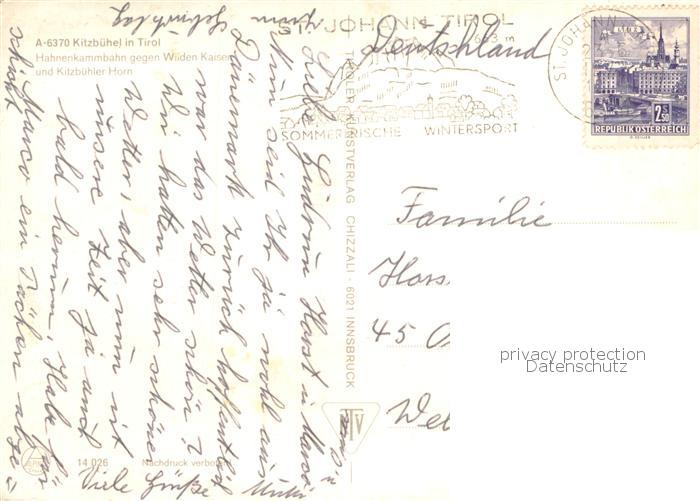 A-6370 Kitzbühel in Tirol
Hahnenkammbahn gegen Wilden Kaiser
und Kitzbühler Horn
ST. JOHANN TIROL
SOMMERFRISCHE WINTERSPORT
ST. JOHANN
LINZ
2 S 50
REPUBLIK ÖSTERREICH
Deutschland
Familie
Hors
45 O
We
Liebe Gudrun, Horst u. Marco
Nun seid Ihr ja wohl aus
Dänemark zurück hoffentlich
war das Wetter schön?
Wir hatten sehr schönes
Wetter, aber nun ist
unsere Zeit ja auch
bald herum. Habe für
Marco ein Päckchen abge-
schickt
zum
Geburtstag
Viele Grüße Mutti
TIROLER KUNSTVERLAG CHIZZALI · 6021 INNSBRUCK
TKV
14 026
Nachdruck verboten
privacy protection
Datenschutz